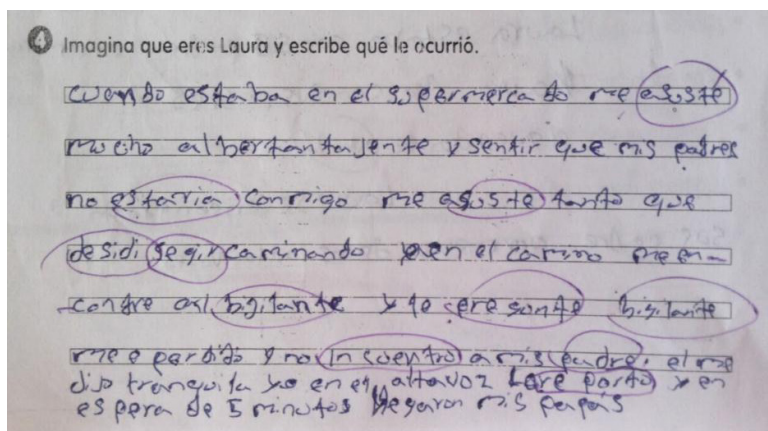 4 Imagina que eres Laura y escribe qué le ocurrió.
cuando estaba en el supermercado me asuste
mucho al ber tanta jente y sentir que mis padres
no estaria conmigo me asuste tanto que
desidi segir caminando y en el camino me en-
contre al bigilante y le bigilante
me e perdido y no incuentro a mis padre. el me
dijo tranquila yo en el altavoz y en
espera de 5 minutos llegaron mis papás